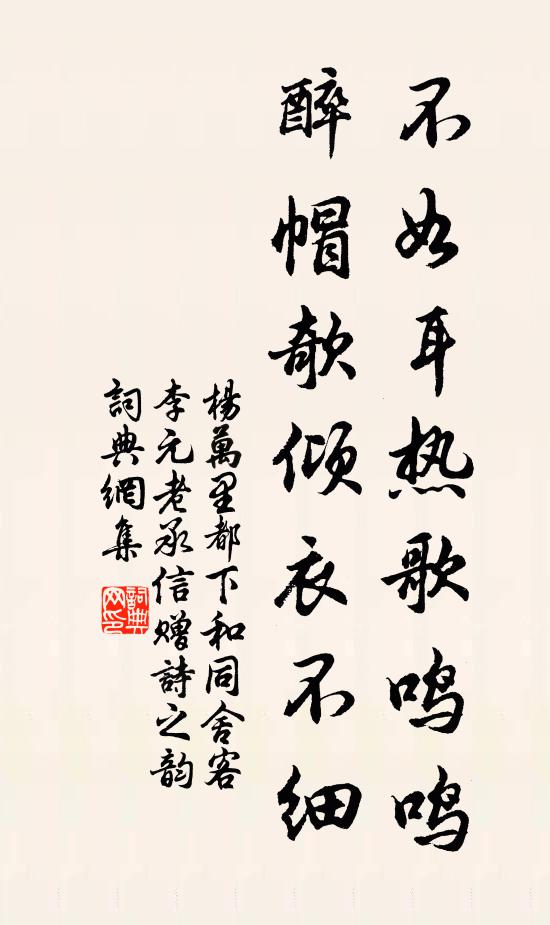 不如耳热歌鸣鸣
醉帽欹倾衣不细
楊萬里都下和同舍客
李元老承信赠詩之韵
詞典網集
詞典网印